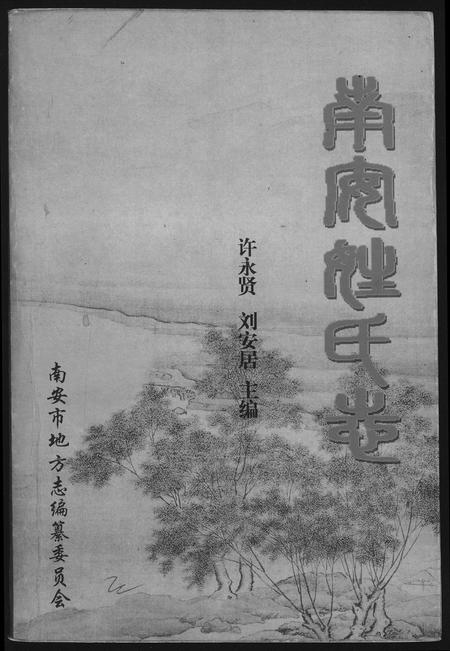 南安姓氏志
许永贤 刘安居 主编
南安市地方志编纂委员会